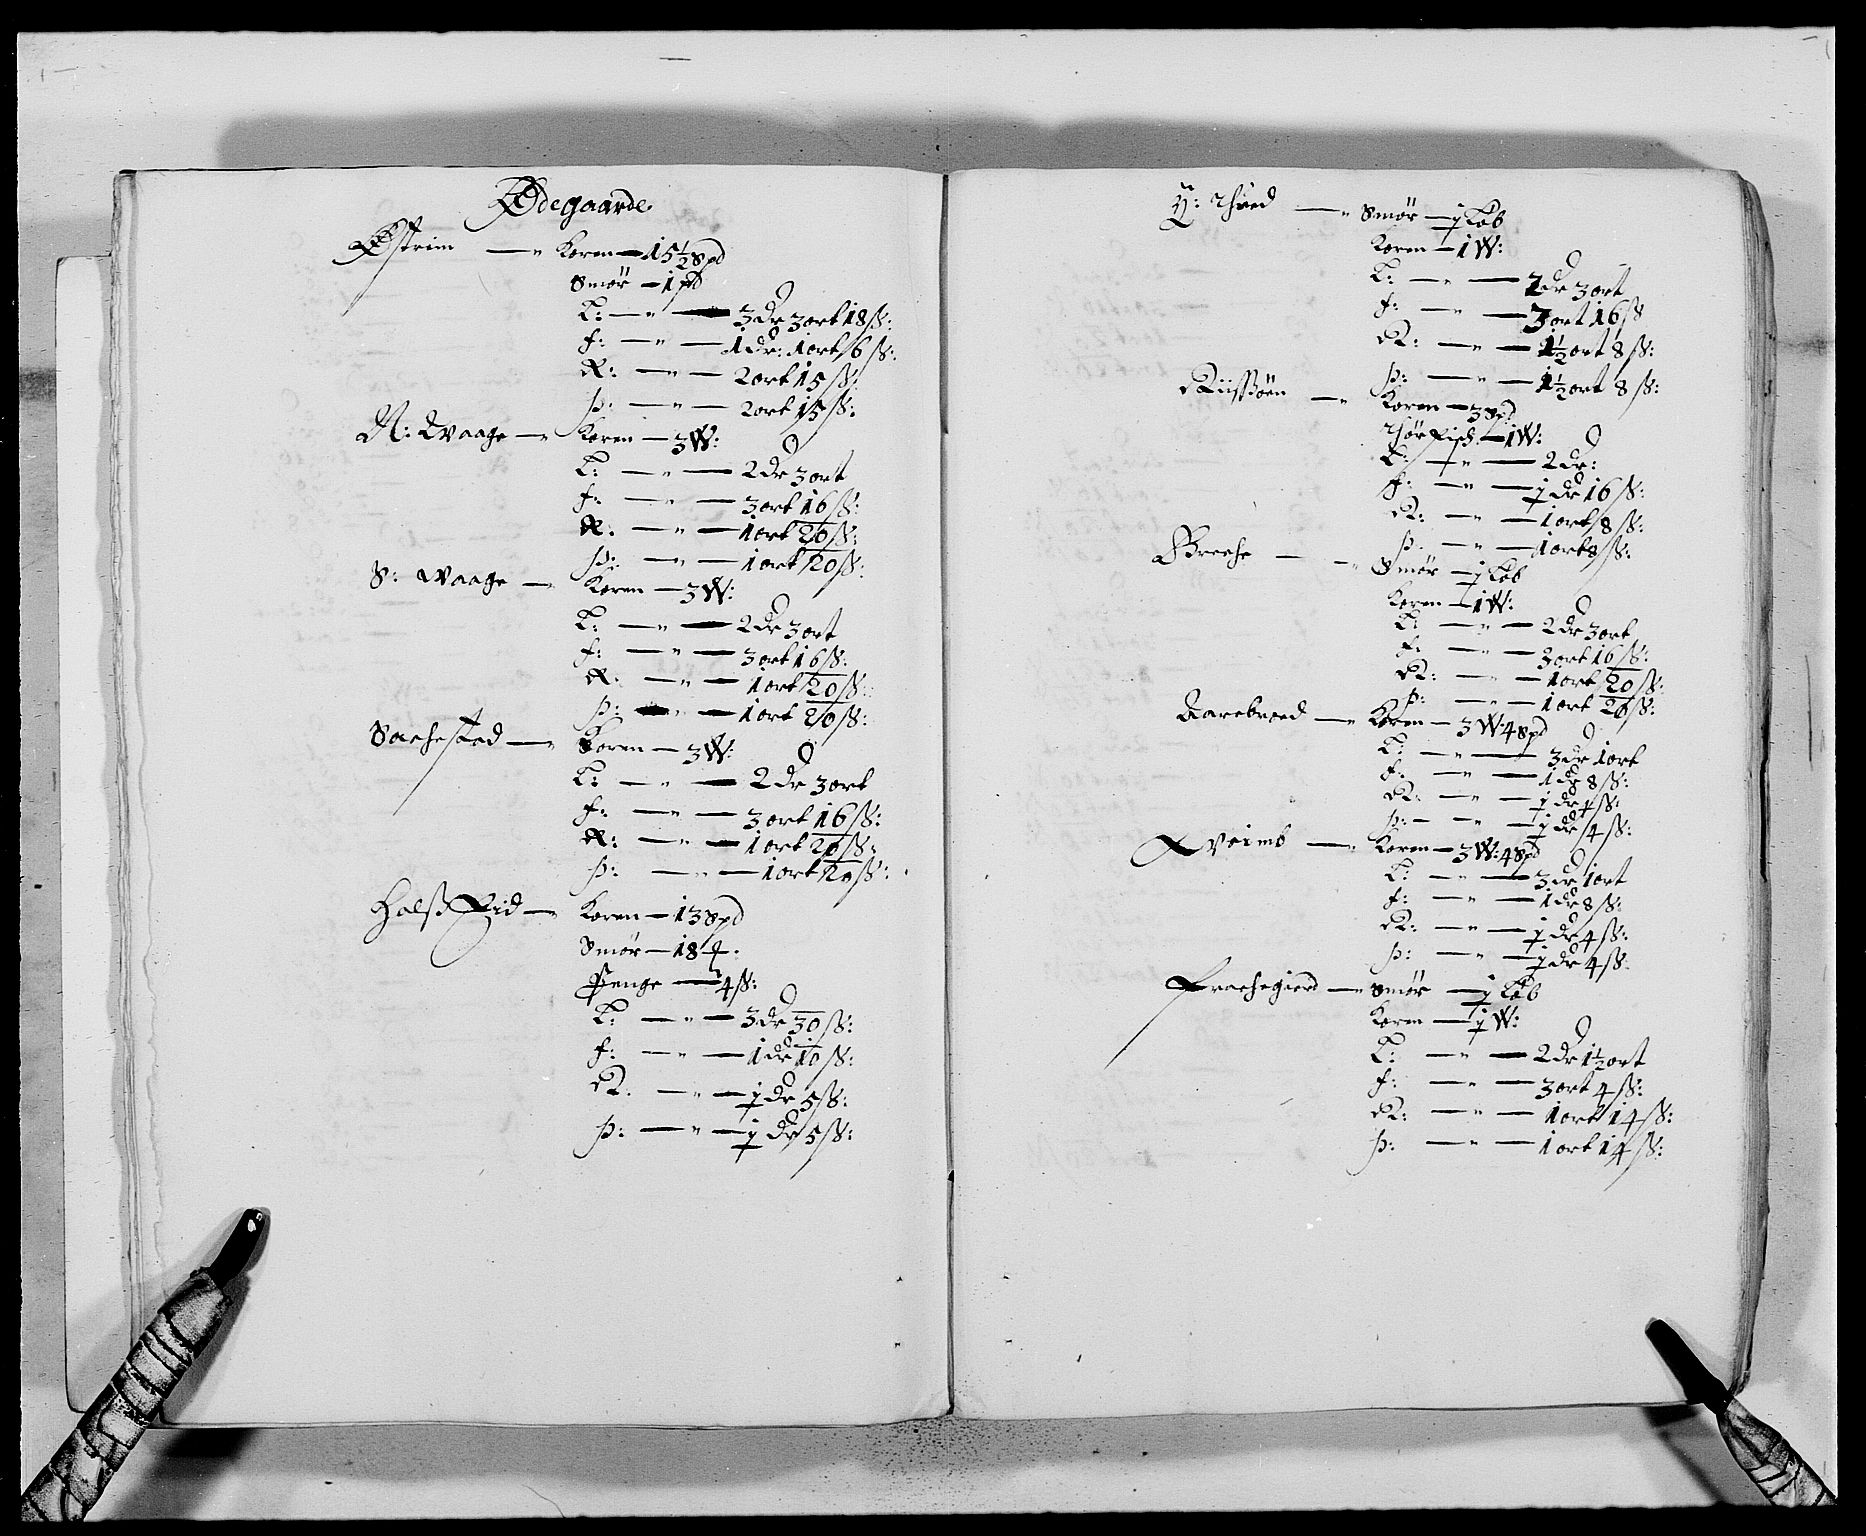 Ødegaarde
Østrim — Koren — 15½ Spd
Smør — 1 pd
L: — 3 dr 3 ort 18 ß:
f: — 1 dr: 1 ort 6 ß:
R: — 2 ort 15 ß:
Þ: — 2 ort 15 ß:
N: Waage — Koren — 3 W:
L: — 2 dr 3 ort
f: — 3 ort 16 ß:
R: — 1 ort 20 ß:
Þ: — 1 ort 20 ß:
S: Waage — Koren — 3 W:
L: — 2 dr 3 ort
f: — 3 ort 16 ß:
R: — 1 ort 20 ß:
Þ: — 1 ort 20 ß:
Saehested — Koren — 3 W:
L: — 2 dr 3 ort
f: — 3 ort 16 ß:
R: — 1 ort 20 ß:
Þ: — 1 ort 20 ß:
Halß Eid — Koren — 13 Spd
Smør — 18
Penge — 4 ß:
L: — 3 dr 30 ß:
f: — 1 dr 10 ß:
R: — ½ dr 5 ß:
Þ: — ½ dr 5 ß:
Y: Thued — Smør — ½ Løb
Koren — 1 W:
L: — 2 dr 3 ort
f: — 3 ort 16 ß
R: — 1½ ort 8 ß:
Þ: — 1½ ort 8 ß:
Riißøen — Koren — 3 Spd
Tørfisch — 1 W:
L: — 2 dr:
f: — ½ dr 16 ß:
R: — 1 ort 8 ß:
Þ: — 1 ort 8 ß:
Breche — Smør — ½ Løb
Koren — 1 W:
L: — 2 dr 3 ort
f: — 3 ort 16 ß:
R: — 1 ort 20 ß:
Þ: — 1 ort 20 ß:
Aarebroed — Koren — 3 W: 4 Spd
L: — 3 dr 1 ort
f: — 1 dr 8 ß:
R: — ½ dr 4 ß:
Þ: — ½ dr 4 ß:
Qveimb — Koren — 3 W: 4 Spd
L: — 3 dr 1 ort
f: — 1 dr 8 ß:
R: — ½ dr 4 ß:
Þ: — ½ dr 4 ß:
Frachegierd — Smør — ½ Løb
Koren — ½ W:
L: — 2 dr 1½ ort
f: — 3 ort 4 ß:
R: — 1 ort 14 ß:
Þ: — 1 ort 14 ß: